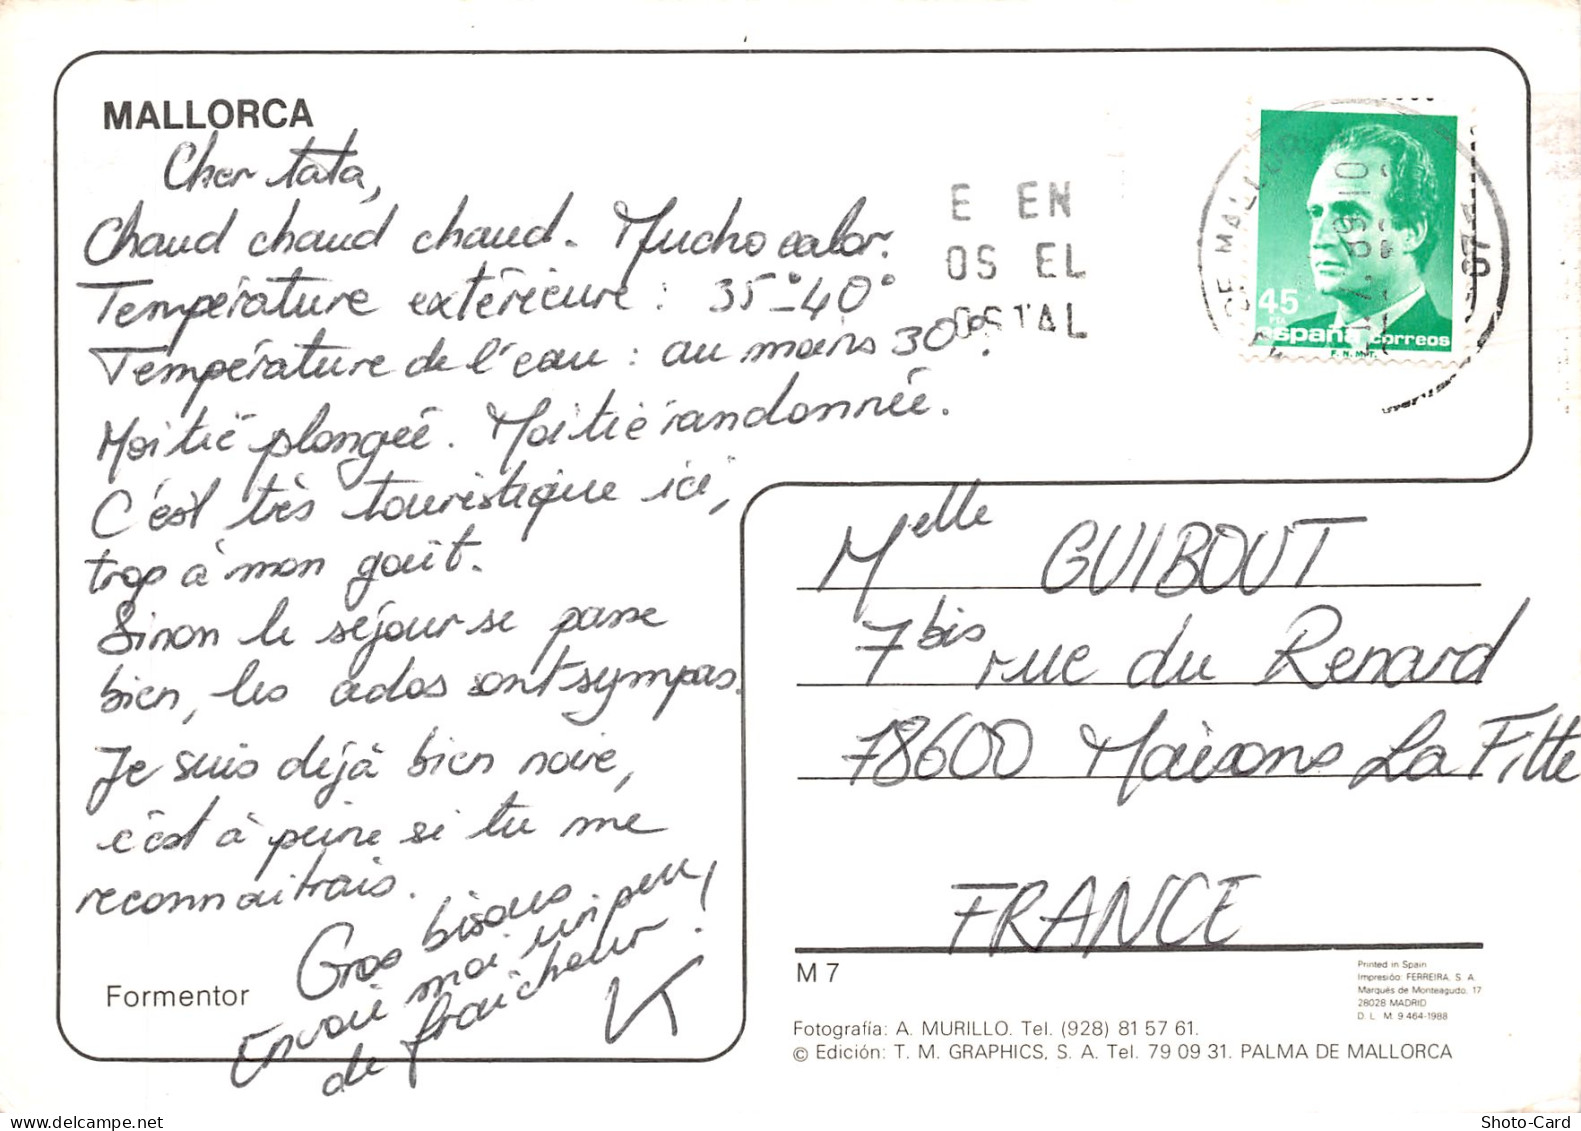 MALLORCA
Cher tata,
Chaud chaud chaud. Mucho calor.
Température extérieure : 35°-40°
Température de l'eau : au moins 30°.
Moitié plongée. Moitié randonnée.
C'est très touristique ici,
trop à mon goût.
Sinon le séjour se passe
bien, les ados sont sympas.
Je suis déjà bien noire,
c'est à peine si tu me
reconnaitrais.
Gros bisous
Envoie moi un peu
de fraîcheur !
K
Formentor
E EN
OS EL
OSTAL
DE MALLOR
45
PTA
españa correos
F.N.M.T.
07
Melle GUIBOUT
7 bis rue du Renard
78600 Maisons La Fitte
FRANCE
M 7
Printed in Spain
Impresión: FERREIRA, S. A.
Marqués de Monteagudo, 17
28028 MADRID
D. L. M. 9 464-1988
Fotografía: A. MURILLO. Tel. (928) 81 57 61.
© Edición: T. M. GRAPHICS, S. A. Tel. 79 09 31. PALMA DE MALLORCA
Shoto-Card